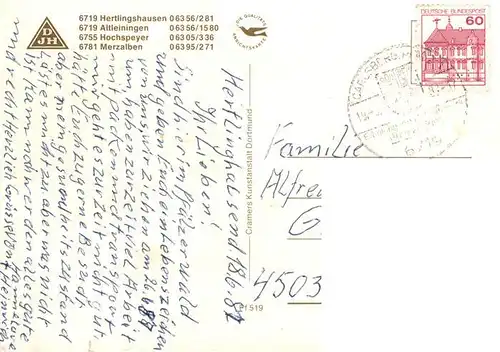 DJH
6719 Hertlingshausen 0 63 56/281
6719 Altleiningen 0 63 56/15 80
6755 Hochspeyer 0 63 05/336
6781 Merzalben 0 63 95/271
60
DEUTSCHE BUNDESPOST
Cramers Kunstanstalt Dortmund
519
Hertlinghausend. 18.6.87
Ihr Lieben!
Sind hier im Pfälzerwald
und geben Euch ein Lebenszeichen
von uns, wir ziehen am
um, haben zur zeit viel Arbeit
mit packen und transport
mir geht es zur Zeit nicht gut
hätte Euch zu gerne Besucht
aber mein gesundheitszustand
lies es nicht zu. aber was nicht
ist kann noch werden alles gute
und recht herzlich Grüsse von
Familie
Alfre
G
4503